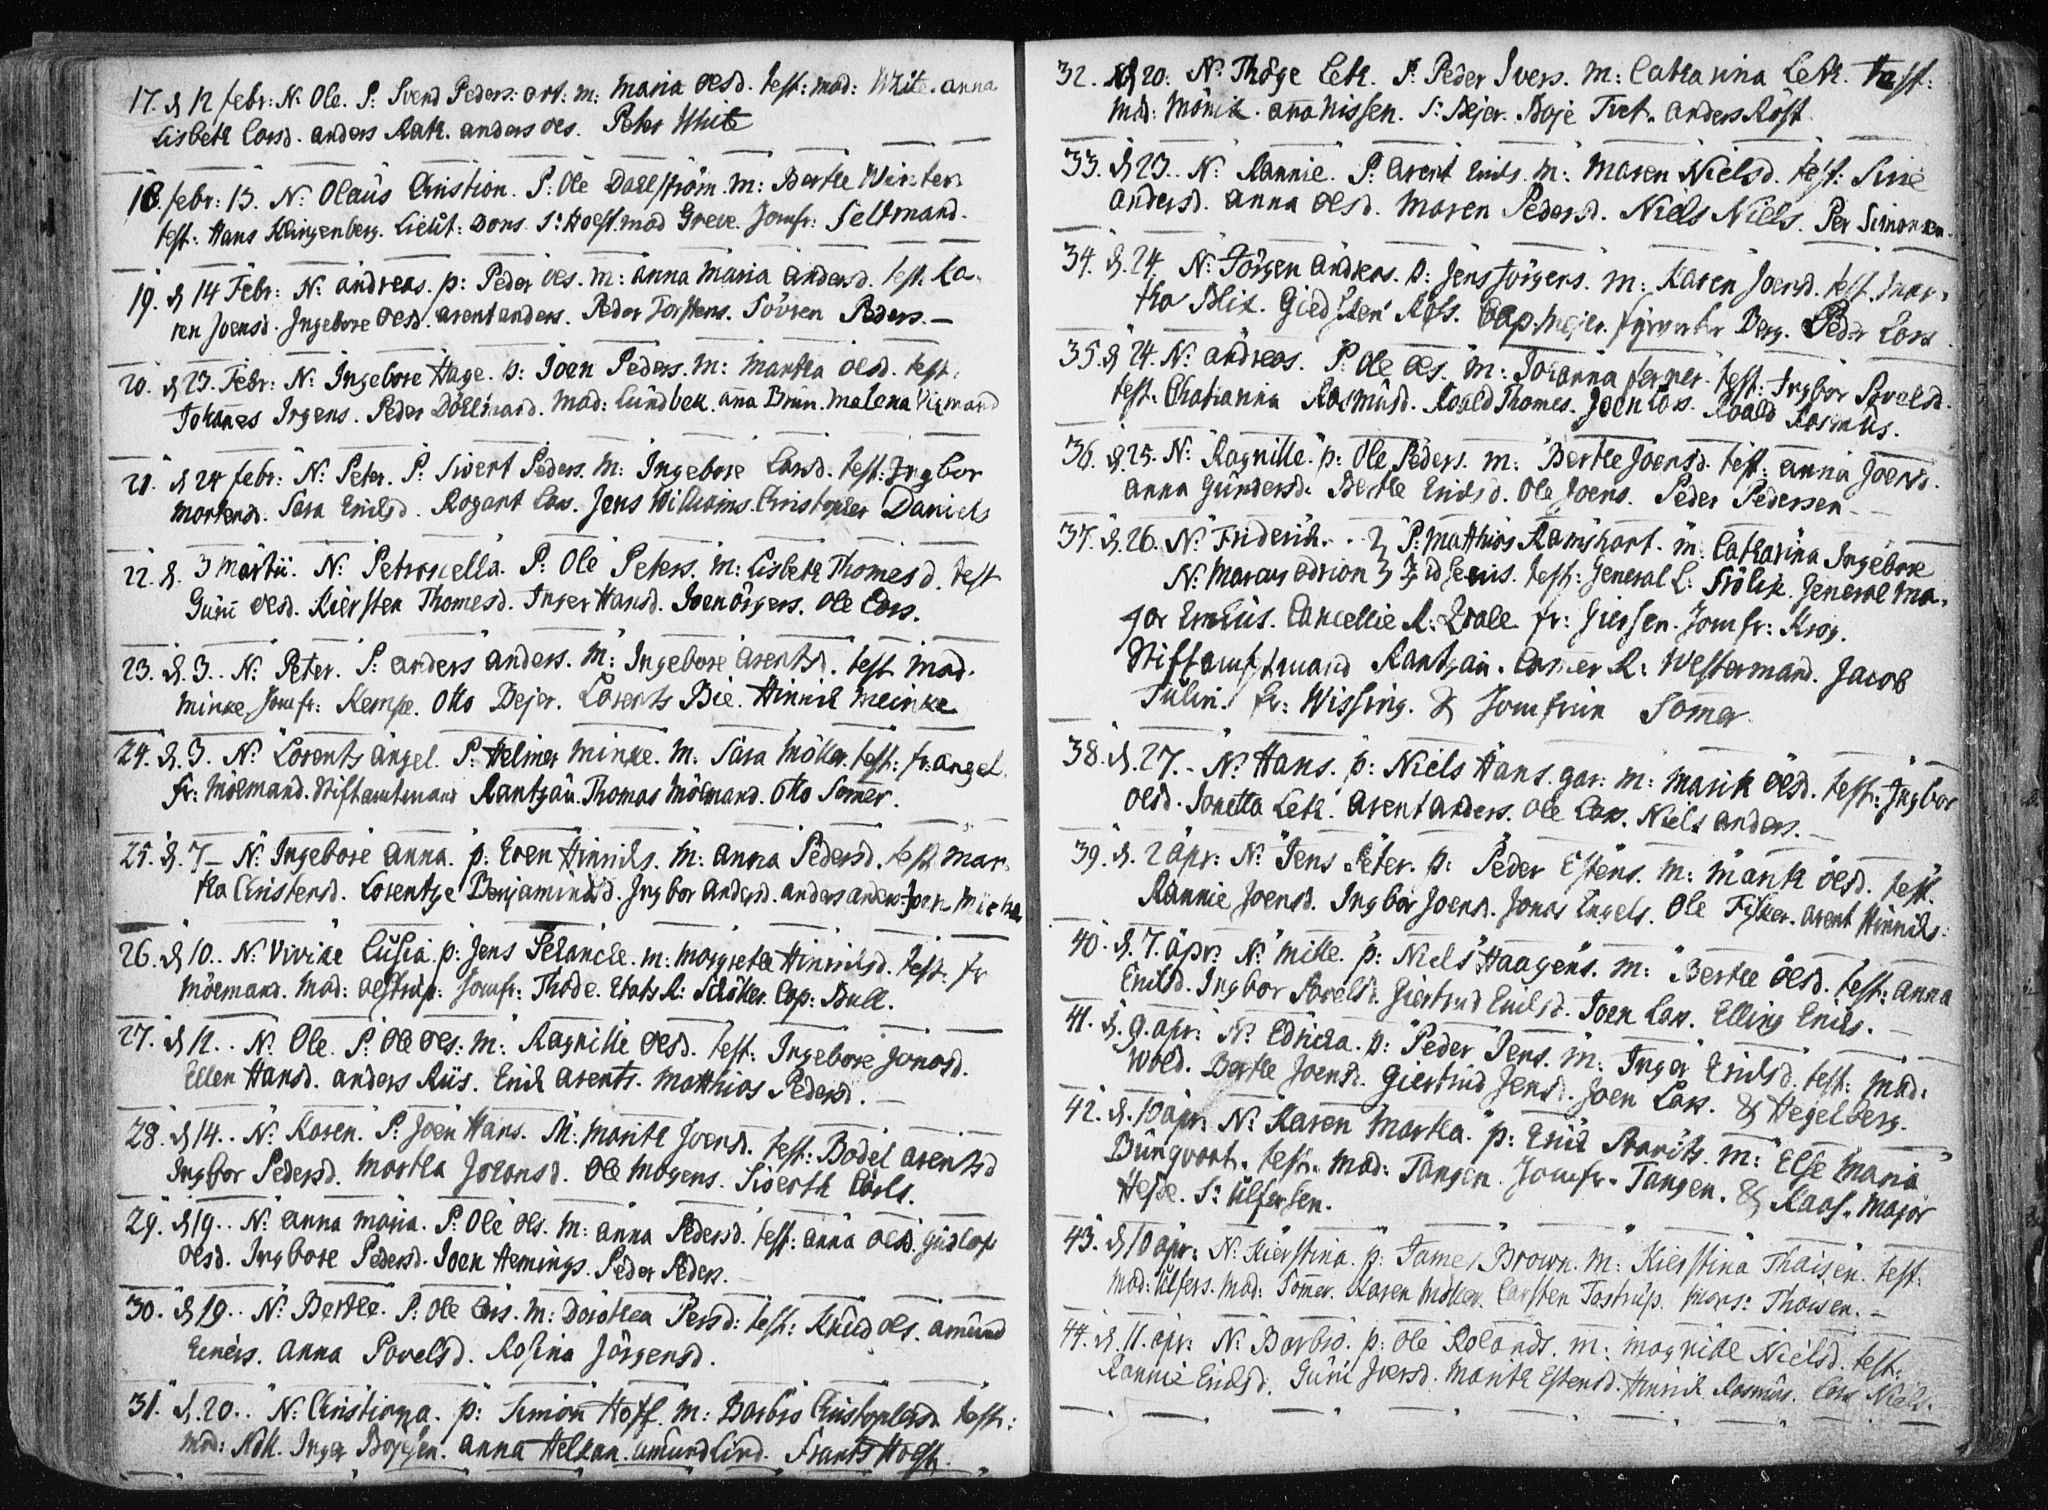 17. d 12 febr: N: Ole. P: Svend Peders: art: m: Maria Oesd. test: mad: White. anna
Lisbeth Larsd. anders Rath. anders Oes. Peter White
18. febr: 13. N: Olaus Christian. P: Ole Dahlström. m: Berthe Winter.
test: Hans Klingenberg. Lieut: Dons. Sr Hoest. mad Greve. Jomfr: Seltmand.
19. d 14 Febr: N: andreas. p: Peder Oes. m: anna Maria andersd. test: Ka-
ren Joensd. Ingebore Oesd. arent anders. Peder Torstens. Sövren Peders. —
20. d 23. Febr: N: Ingebore Hage. p: Joen Peders. m: Martha Oesd. test.
Johañes Irgens. Peder Döllmard. Mad: Lundbek. aña Brun. Malena Vigmand
21. d 24 febr: N: Peter. P: Sivert Peders. m: Ingebore Larsd. test: Ingbor
Mortensd. Sara Erichsd. Rogart Lars. Jens Williams. Christopher Daniels
22. d. 3 Martii. N: Petronella. P: Ole Peters. m: Lisbeth Thomesd. test
Guñi Oesd. Kiersten Thomesd. Inger Hansd. Joen örgers. Ole Lars.
23. d. 3. N: Peter. P: anders anders. M: Ingebore arentsd. test Mad.
Minke. Jomfr: Kempe. Otto Bejer. Lorents Bie. Hinnich Meinke
24. d. 3. N: Lorents angel. P: Helmer Minke. M: Sara Möller. test: fr: angel.
fr: Mölmand. Stiftamtmand Rantzau. Thomas Mölmand. Otto Somer.
25. d. 7 — N: Ingebore anna. p: Even Hinrichs. M: anna Pedersd. test: Mar-
tha Christensd. Lorentze Benjaminsd. Ingbor andersd. anders anders. Joen Michel
26. d 10.. N: Vivike Lusia. p: Jens Schancke. m: Margrethe Hinrichsd. test: fr
Mölmand. Mad: Oelstrup: Jomfr: Thode. Etats R: Schöller. Cap: Bull.
27. d 12.. N: Ole. P: Ole Oes. m: Ragnille Oesd. test: Ingebore Jonasd.
Ellen Hansd. anders Riis. Erich arents. Matthias Pedersd. —
28. d 14.. N: Karen. P: Joen Hans. M: Marith Joensd. test: Bodel arentsd
Ingbor Pedersd. Martha Johansd. Ole Mogens. Siverth Carls.
29. d 19.. N: anna Maria. P: Ole Oes. M: anna Pedersd. test: anna Oesd. Gudlof
Oesd. Ingbore Pedersd. Joen Hemings. Peder Peders. —
30. d 19.. N: Berthe. P: Ole Lars. m: Dorothea Persd: test: Knud Oes. amund
Einers. anna Povelsd. Rosina Jörgensd.
31. d. 20.. N: Christianna. p: Simon Hoff. M: Barbro Christophersd. test:
mad: Nok. Inger Boysen. anna Helkan. amund Lind. Frants Hoest.
32. d 20. N: Thöge Leth. P: Peder Ivers. M: Catharina Leth. Test:
Mad: Mönik. aña Nissen. Sr Bejer. Boje Tvet. anders Röst.
33. d 23.. N: Rannie. P: arent Erichs. M: Maren Nielsd. test: Sirie
andersd. anna Oesd. Maren Pedersd. Niels Niels. Per Simonsen.
34. d. 24. N: Jörgen andreas. p: Jens Jörgens. M: Karen Joensd. test. Mar-
tha Blix. Cap. Mejer. Berg. Peder Lars
35. d 24. N: andreas. P: Ole Oes. m: Johanna ferner. test: Ingbor Povelsd.
test. Chatianna Rasmusd. Roald Thomes. Joen Lars. Roald Rasmus.
36. d. 25. N: Ragnille. p: Ole Peders. m: Berthe Joensd. test: anna Joensd.
anna Gundersd. Berthe Erichsd. Ole Joens. Peder Pedersen —
37. d. 26. N: Friderich. . } P: Matthias Ramshart. m: Catharina Ingebore
N: Marcus adrion } test: General L: Frölik. General Ma-
jor Cancellie R: fr: Giersen. Jomfr: Krog.
Stiftamtmand Rantzau. Camer R: Westermand. Jacob
Tulin. fr: Wissing. & Jomfrun Somer.
38. d. 27.. N: Hans. p: Niels Hans. gar: m: Marith Oesd. test: Ingbor
Oesd. Jonetta Leth. arent anders. Ole Lars. Niels anders. —
39. d. 2 apr: N: Jens Peter. p: Peder Estens. M: Marith Oesd. test.
Rannie Joensd. Ingbor Joensd. Jonas Engels. Ole Fisker. arent Hinrichs.
40. d. 7. apr: N: Mille. p: Niels Haagens. m: Berthe Oesd. test: anna
Erichsd. Ingbor Povelsd. Giertrud Erichsd. Joen Lars. Elling Erichs. —
41. d. 9. apr: N: Edvicka. p: Peder Jens. m: Inger Erichsd. test: Mad:
Wold. Berthe Joensd. Giertrud Jensd. Joen Lars. & Hegelberg.
42. d. 10 apr: N: Karen Martha. p: Erich Arents. m: Else Maria
Bungvort. test. Mad: Tangen. Jomfr. Tangen. & Raas. Major
Hesse. Sr Ulfersen.
43. d 10 apr: N: Kierstina. p: James Brown. m: Kierstina Thaisen. test:
Mad: Ulfers. Mad: Somer. Karen Möller. Carsten Tostrup. Mons: Thaisen. —
44. d. 11. apr: N: Barbro. p: Ole Rolands. m: Magnille Nielsd. test:
Rannie Erichsd. Guñi Joersd. Marith Estensd. Hinrich Rasmus. Lars Niels.